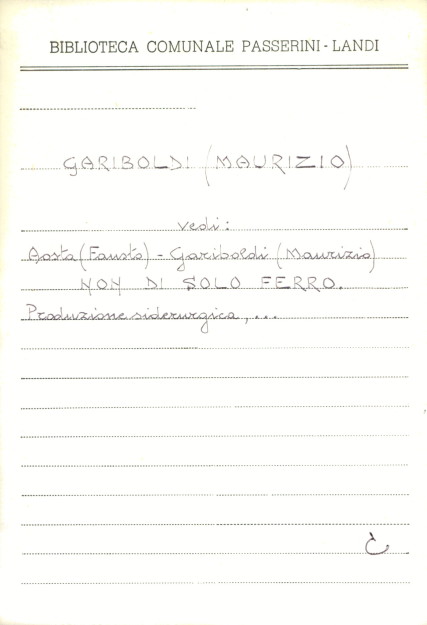 BIBLIOTECA COMUNALE PASSERINI-LANDI
GARIBOLDI (MAURIZIO)
vedi:
Aosta (Fausto) - Gariboldi (Maurizio)
NON DI SOLO FERRO.
Produzione siderurgica, ...